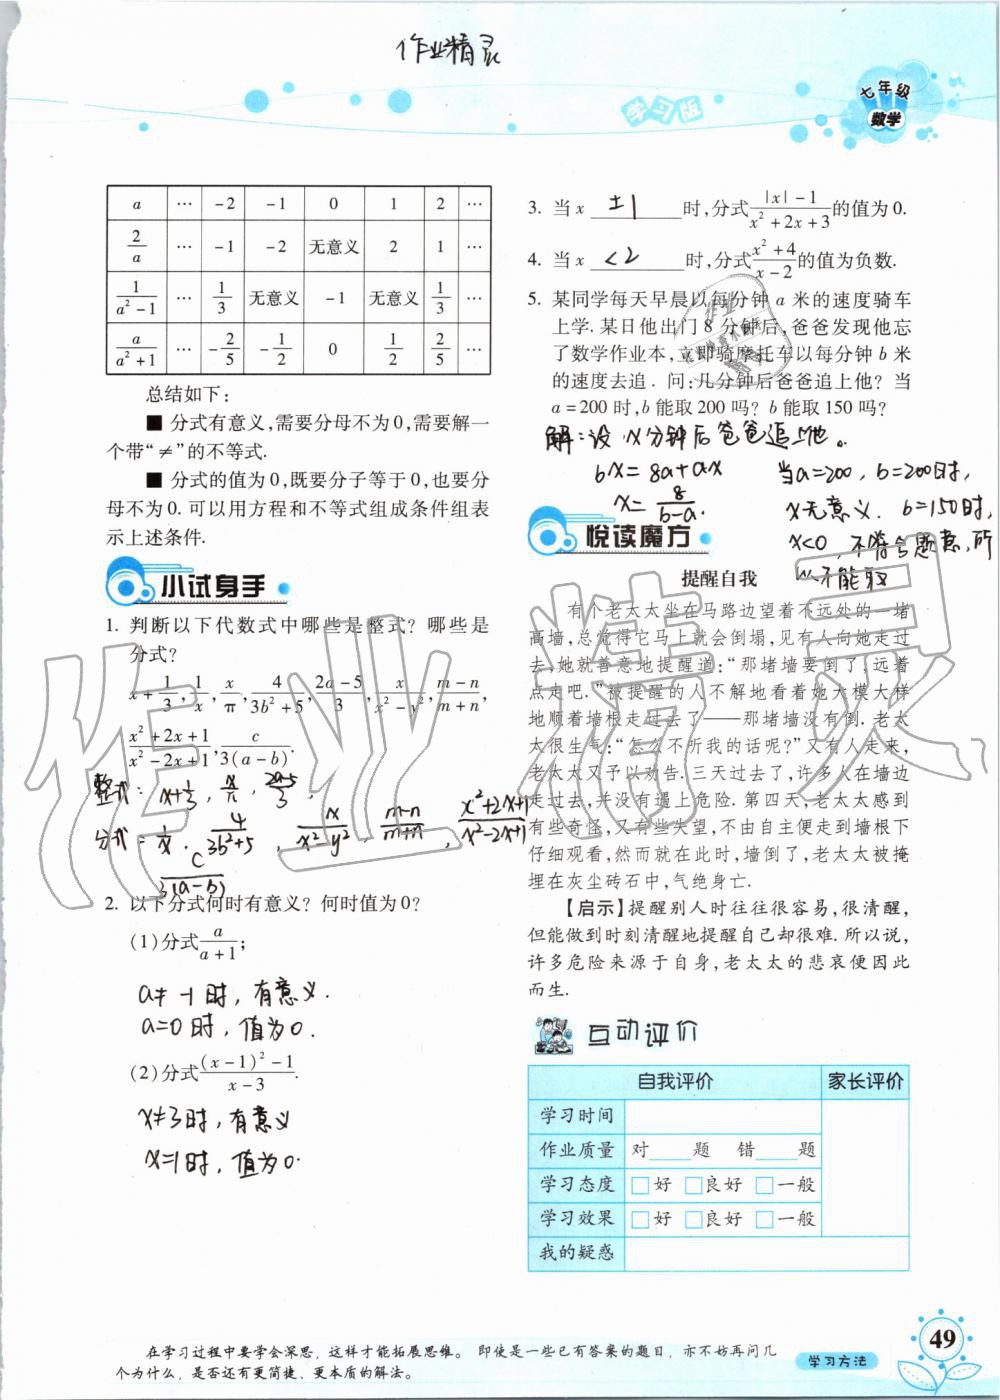 作业精灵
学习版
七年级
数学
a … -2 -1 0 1 2 …
2/a … -1 -2 无意义 2 1 …
1/(a²-1) … 1/3 无意义 -1 无意义 1/3 …
a/(a²+1) … -2/5 -1/2 0 1/2 2/5 …
总结如下:
■ 分式有意义,需要分母不为0,需要解一
个带“≠”的不等式.
■ 分式的值为0,既要分子等于0,也要分
母不为0. 可以用方程和不等式组成条件组表
示上述条件.
小试身手
1. 判断以下代数式中哪些是整式? 哪些是
分式?
x+1/3, 1/x, x/π, 4/(3b²+5), (2a-5)/3, x/(x²-y²), (m-n)/(m+n),
(x²+2x+1)/(x²-2x+1), c/(3(a-b)).
整式: x+1/3, x/π, (2a-5)/3,
分式: 1/x, 4/(3b²+5), x/(x²-y²), (m-n)/(m+n), (x²+2x+1)/(x²-2x+1)
c/(3(a-b))
2. 以下分式何时有意义? 何时值为0?
(1)分式a/(a+1);
a≠-1时, 有意义.
a=0时, 值为0.
(2)分式((x-1)²-1)/(x-3).
x≠3时, 有意义
x=1时, 值为0.
3. 当x ±1 时,分式(|x|-1)/(x²+2x+3)的值为0.
4. 当x <2 时,分式(x²+4)/(x-2)的值为负数.
5. 某同学每天早晨以每分钟a米的速度骑车
上学. 某日他出门8分钟后,爸爸发现他忘
了数学作业本,立即骑摩托车以每分钟b米
的速度去追. 问:几分钟后爸爸追上他? 当
a=200时,b能取200吗? b能取150吗?
解:设x分钟后爸爸追上他。
bx=8a+ax
x=8/(b-a).
当a=200, b=200时,
x无意义. b=150时,
x<0, 不符合题意, 所
以不能取
悦读魔方
提醒自我
有个老太太坐在马路边望着不远处的一堵
高墙,总觉得它马上就会倒塌,见有人向她走过
去,她就善意地提醒道:“那堵墙要倒了,远着
点走吧.”被提醒的人不解地看着她大模大样
地顺着墙根走过去了——那堵墙没有倒. 老太
太很生气:“怎么不听我的话呢?”又有人走来,
老太太又予以劝告. 三天过去了,许多人在墙边
走过去,并没有遇上危险. 第四天,老太太感到
有些奇怪,又有些失望,不由自主便走到墙根下
仔细观看,然而就在此时,墙倒了,老太太被掩
埋在灰尘砖石中,气绝身亡.
【启示】提醒别人时往往很容易,很清醒,
但能做到时刻清醒地提醒自己却很难. 所以说,
许多危险来源于自身,老太太的悲哀便因此
而生.
互动评价
自我评价 家长评价
学习时间
作业质量 对____题 错____题
学习态度 □好 □良好 □一般
学习效果 □好 □良好 □一般
我的疑惑
作业精灵
在学习过程中要学会深思,这样才能拓展思维。 即使是一些已有答案的题目,亦不妨再问几
个为什么,是否还有更简捷、更本质的解法。
学习方法
49